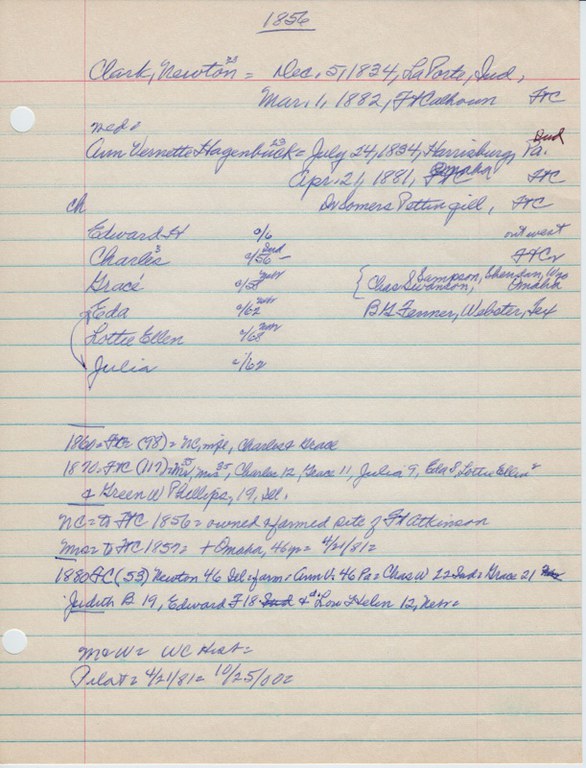 1856
Clark, Newton 23 = Dec. 5, 1834, LaPorte, Ind,
Mar. 1, 1882, Ft Calhoun FtC
wed:
Ann Vernette Hagenbuck 23 = July 24, 1834, Harrisburg, Pa. Ind
Apr. 21, 1881, FtC Omaha FtC
ch Dr Somers Pettingill, FtC
Edward H a/o out west
Charles 3 a/56 Ind – FtC
Grace a/58 Nebr { Sampson, Sheridan, Wyo
Chas Swanson, Omaha
Eda a/62 Nebr B G Fenner, Webster, Tex
Lottie Ellen a/68 Nebr
Julia a/62
1860 = FtC (98) = NC, wife, Charles & Grace
1870 = FtC (117) = Mr, Mrs 35, Charles 12, Grace 11, Julia 9, Eda 8, Lottie Ellen 2
& Green W Phillips, 19, Ill.
NC = to FtC 1856 = owned & farmed site of Ft Atkinson
Mrs = to FtC 1857 = + Omaha, 46 yr = 4/21/81 =
1880 FC (53) Newton 46 Ill = farm = Ann V. 46 Pa = Chas W 22 Ind = Grace 21
Judith B 19, Edward F 18 Ind & d. Lou Helen 12, Nebr =
M & W = WC Hist =
Pilot = 4/21/81 = 10/25/00 =